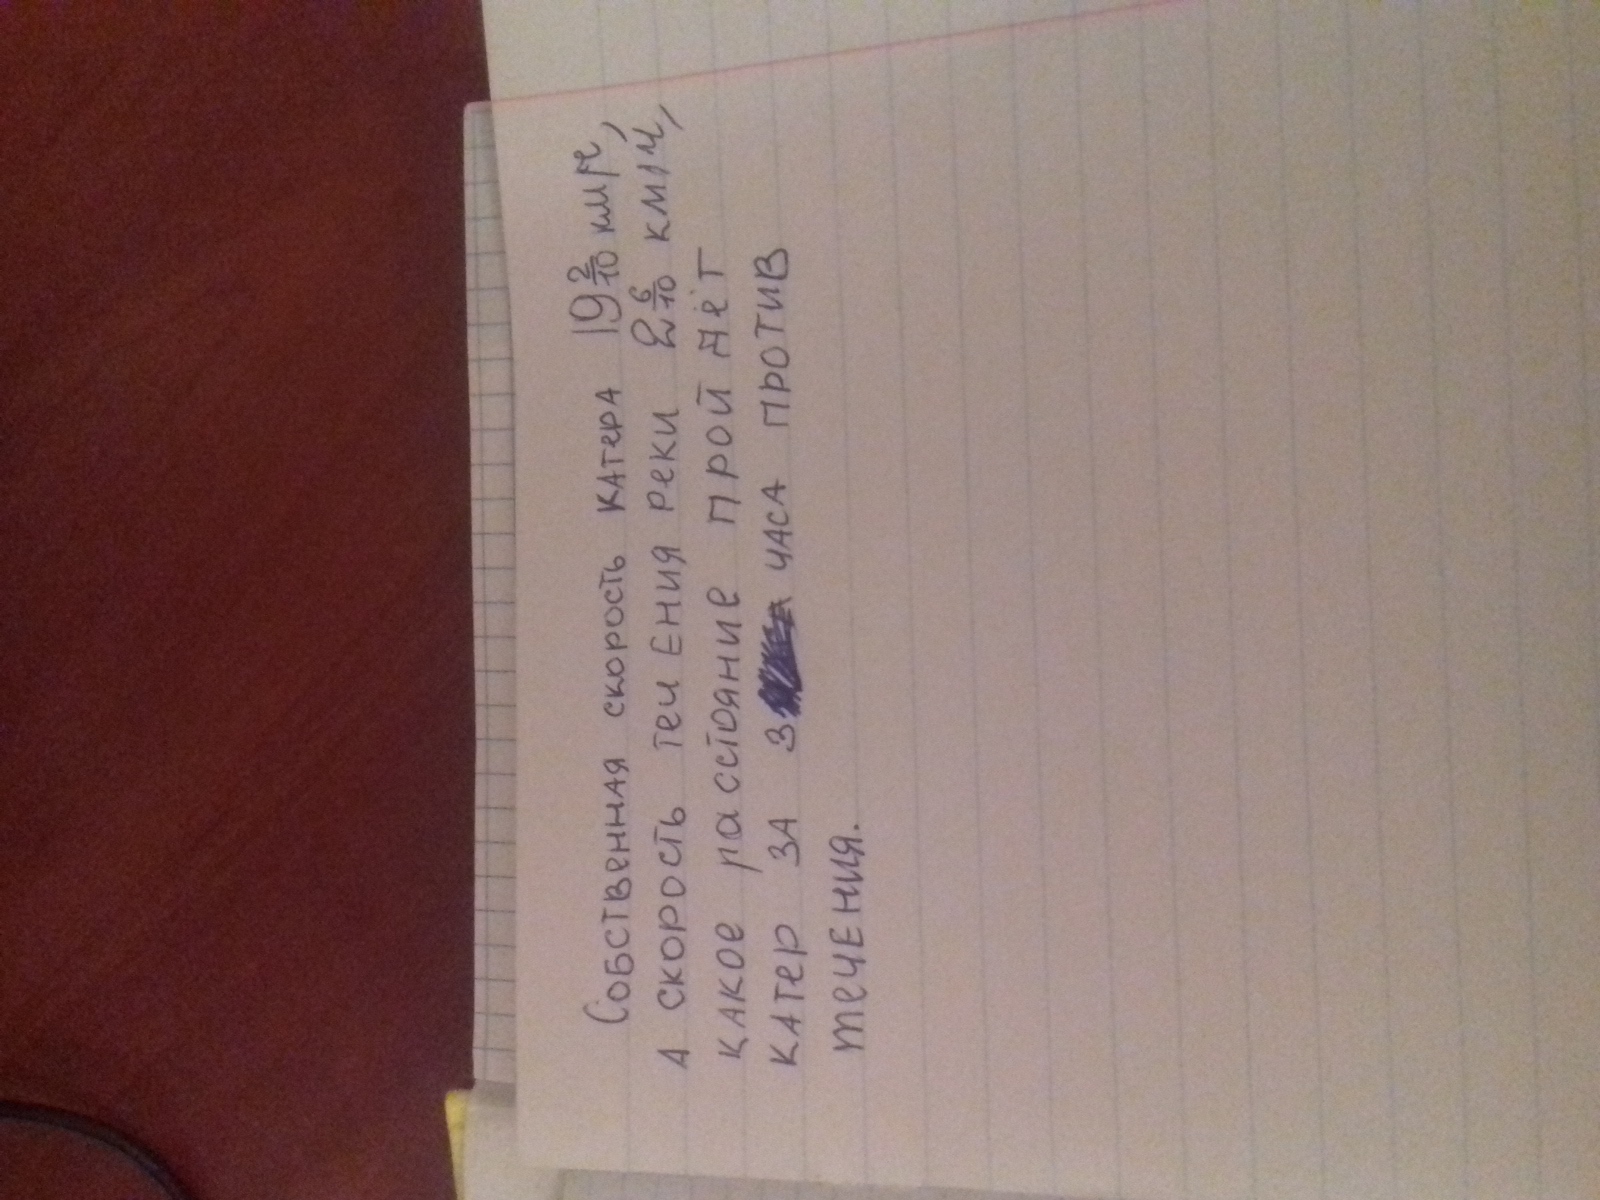 Собственная скорость катера 19 2/10 км/ч,
а скорость течения реки 2 6/10 км/ч,
какое расстояние пройдёт
катер за 3 часа против
течения.